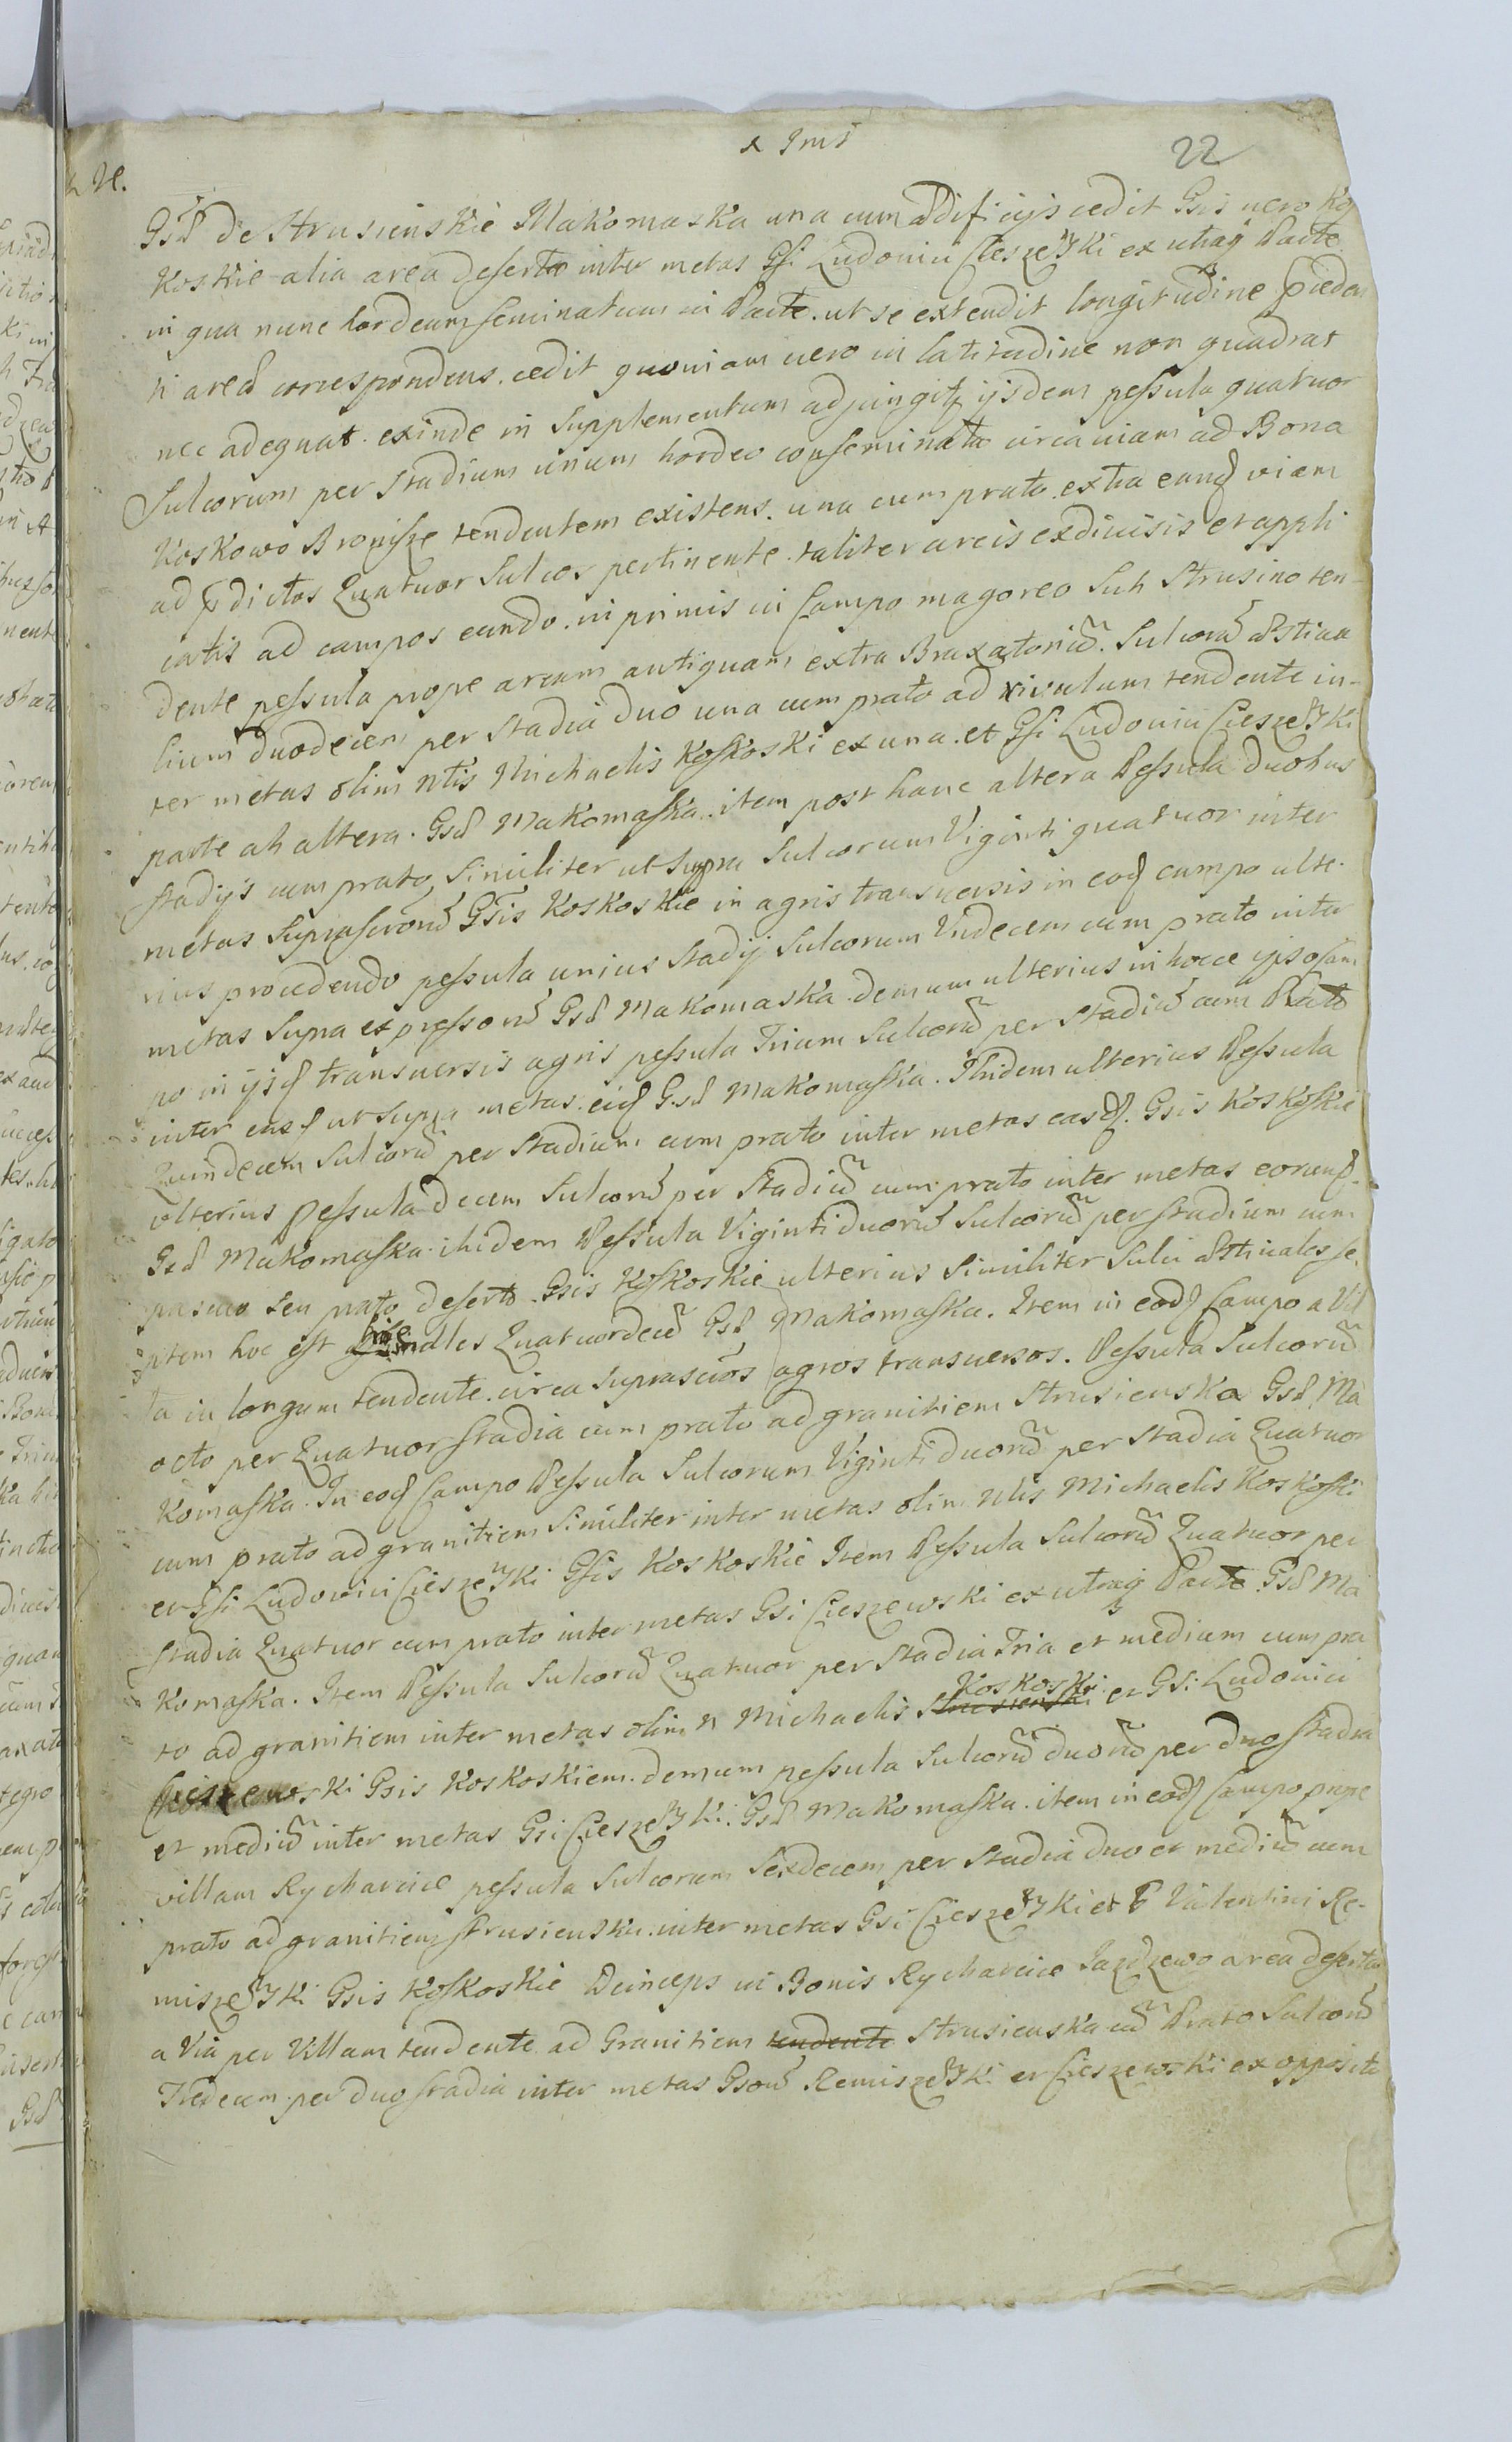 x Jms
22
Gsd de Strusienskie Makomaska una cum Ædificijs cedit Gsis uero Ko
koskie alia area deserta inter metas Gsi Ludouici Cieszewski ex utraq Parte
in qua nunc hordeum seminatum in Parte. ut se extendit longitudine
ti areæ correspondens. cedit quoniam uero in latitudine non quadrat
nec adequat. exinde in Supplementum adjungitz ijsdem pessula quatuor
Sulcorum per stadium unum hordeo conseminata circa uiam ad Bona
Koskowo Bronisze tendentem existens. una cum prato. extra eand viam
ad pdictos Quatuor Sulcos pertinente. taliter areis exdiuisis et appli
catis ad campos eundo. in primis in Campo magoreo Sub Strusino ten-
dente pessula prope aream antiquam extra Braxatoriũ. Sulcorũ Æstiua
lium duodecem per stadia duo una cum prato ad riuulum tendente in-
ter metas olim Nlis Michaelis Koskoski ex una. et Gsi Ludouici Cieszewski
parte ab altera. Gsd Makomaska. item post hanc altera Pessula duobus
stadijs cum prato Similiter ut Supra Sulcorum Viginti quatuor inter
metas Suprascronũ Gsis Koskoskie in agris transuersis in eod campo ulte-
rius procedendo pessula unius stadij Sulcorum Undecem cum prato inter
metas Supra expressorũ Gsd Makomaska. demum ulterius in hocce ipso Cam
po in ijsd transuersis agris pessula Trium Sulcorũ per stadiũ cum Prato
inter easd ut Supra metas. eid Gsd Makomaska. Ibidem ulterius Pessula
Quindecem Sulcorũ per stadium cum prato inter metas easd. Gsis Koskoskie
ulterius Pessula decem Sulcorũ per stadiũ cum prato inter metas eorund.
Gsd Makomaska. ibidem Pessula Viginti duorũ Sulcorũ per stadium cum
pascuo seu prato deserto. Gsis Koskoskie ulterius Similiter Sulci Æstiuales se
ptem hoc est hiemales Quatuordecẽ Gsd Makomaska. Item in eod Campo a Vil
la in longum tendente. circa suprascros agros transuersos. Pessula Sulcorũ
octo per Quatuor stadia cum prato ad granitiem Strusienska Gsd Ma
komaska. In eod Campo Pessula Sulcorum Viginti duorũ per stadia Quatuor
cum prato ad granitiem Similiter inter metas olim Nlis Michaelis Koskoski
et Gsi Ludouici Cieszewski Gsis Koskoskie Item Pessula Sulcorũ Quatuor per
stadia Quatuor cum prato inter metas Gsi Cieszewski ex utraq Parte Gsd Ma
komaska. Item Pessula Sulcorũ Quatuor per stadia Tria et medium cum pra
to ad granitiem inter metas olim N Michaelis Strusienski Koskoski et Gsi Ludouici
Cieszewski Gsis Koskoskiem. demum pessula Sulcorũ duorũ per duo stadia
et mediũ inter metas Gsi Cieszewski. Gsd Makomaska. item in eod Campo prope
villam Rycharcice pessula Sulcorum Sexdecem per stadia duo et mediũ cum
prato ad granitiem strusienska. inter metas Gsi Cieszewski et G Valentini Re-
miszewski Gsis Koskoskie Deinceps in Bonis Rycharcice Jazdzewo area deserta
a Via per Villam tendente ad Granitiem tendente Strusienska cũ Prato Sulcorũ
Tredecem per duo stadia inter metas Gsorũ Remiszewski et Cieszewski ex opposito